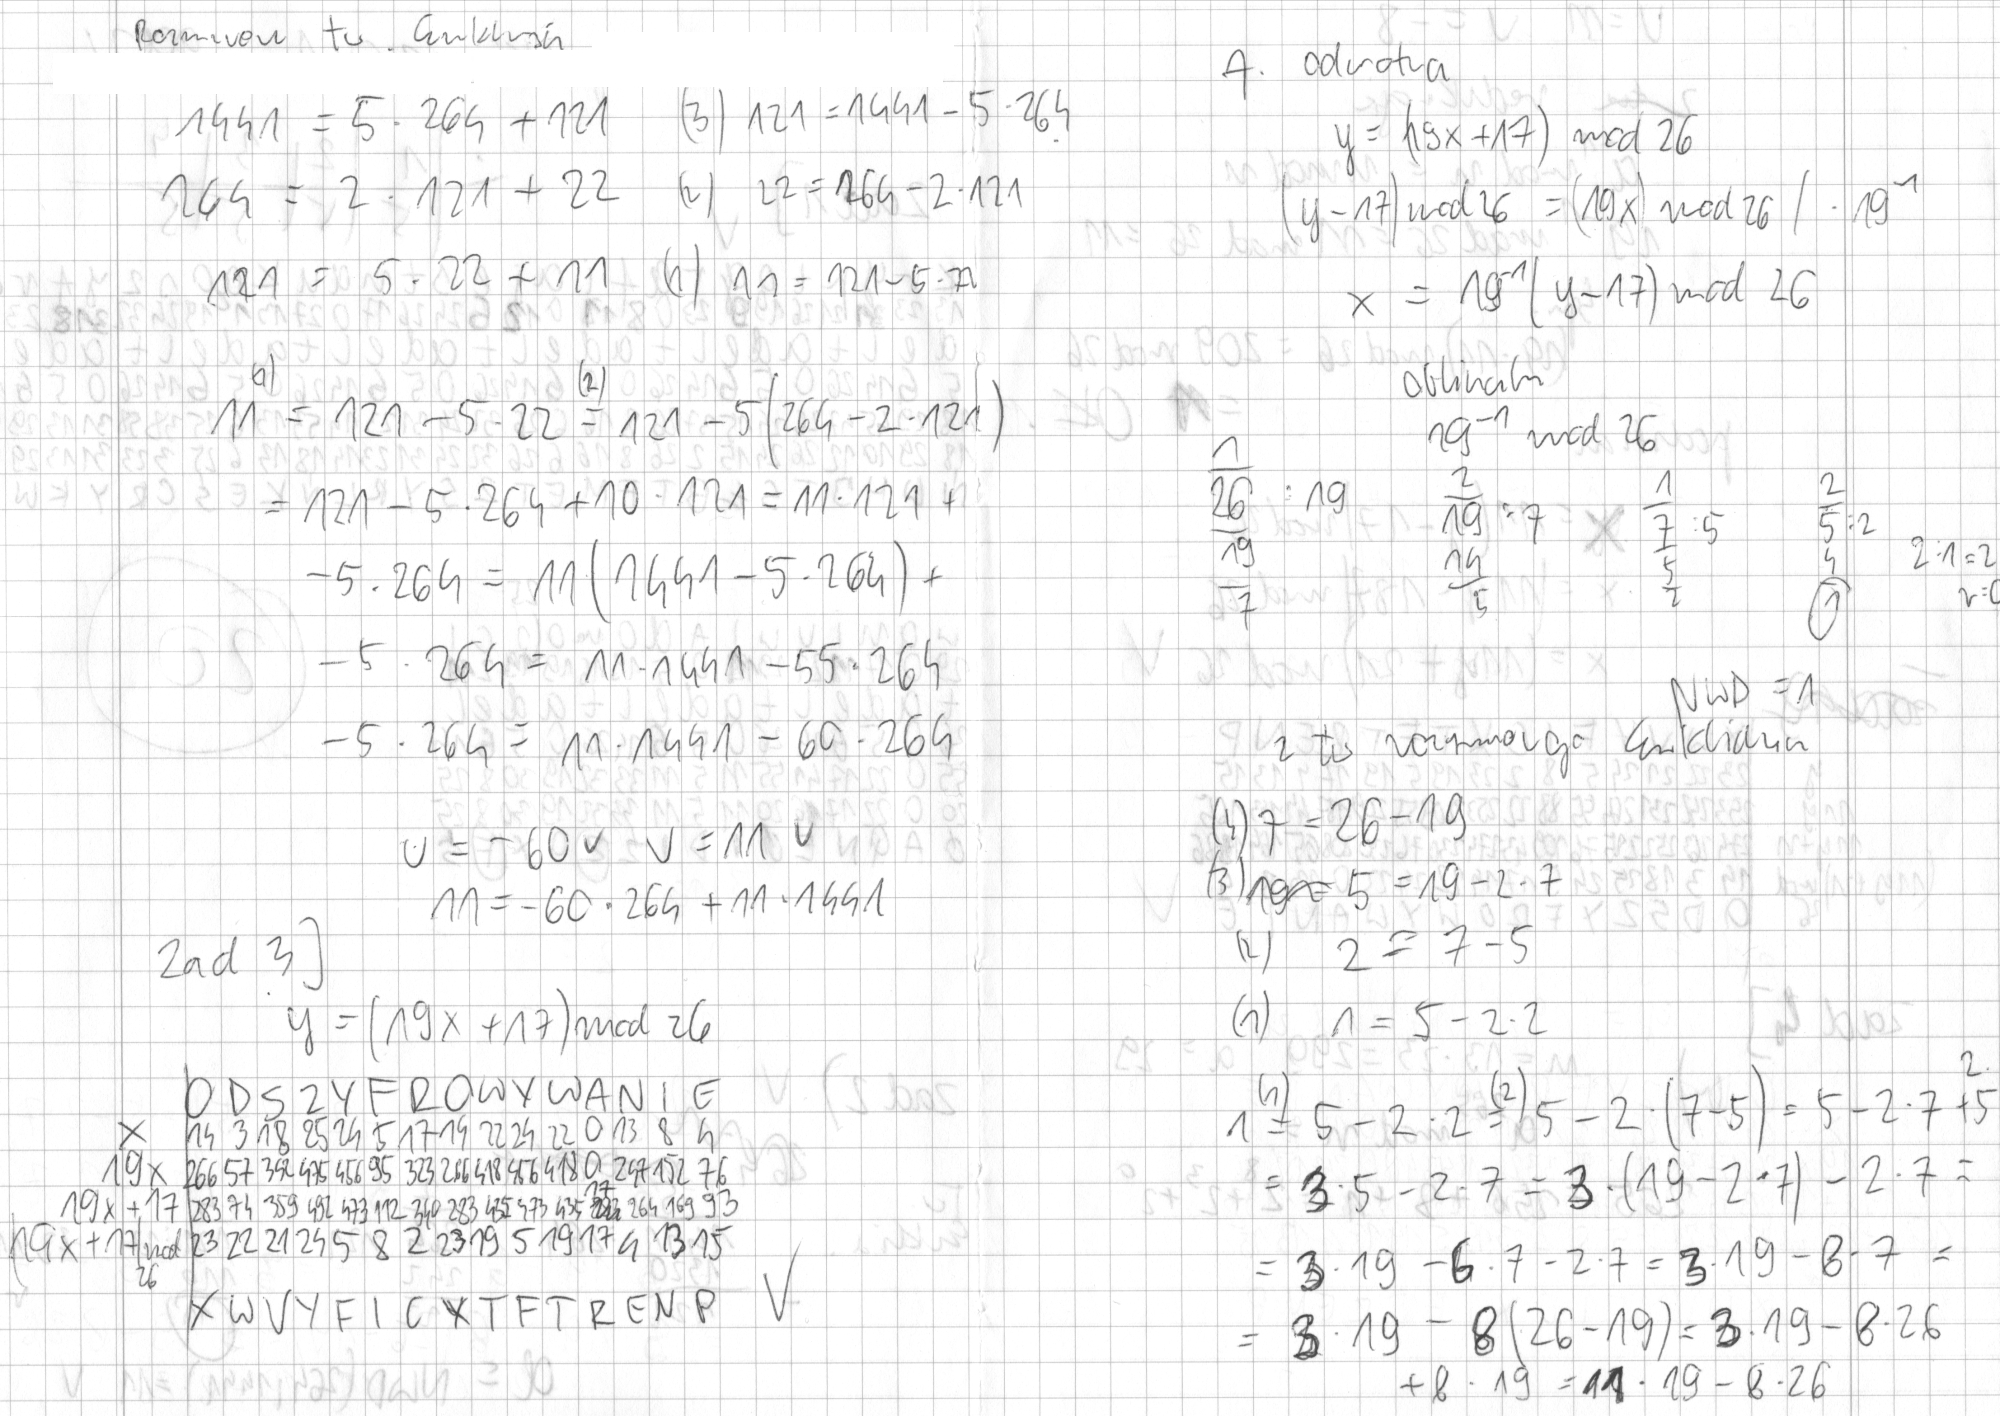 Rozszerzony tw. Euklidesa
1441 = 5 · 264 + 121 (3) 121 = 1441 - 5 · 264
264 = 2 · 121 + 22 (2) 22 = 264 - 2 · 121
121 = 5 · 22 + 11 (1) 11 = 121 - 5 · 22
11 (1)= 121 - 5 · 22 (2)= 121 - 5(264 - 2 · 121)
= 121 - 5 · 264 + 10 · 121 = 11 · 121 +
-5 · 264 = 11(1441 - 5 · 264) +
-5 · 264 = 11 · 1441 - 55 · 264
-5 · 264 = 11 · 1441 - 60 · 264
u = -60 v = 11
11 = -60 · 264 + 11 · 1441
Zad 3]
y = (19x + 17) mod 26
O D S Z Y F R O W Y W A N I E
x 14 3 18 25 24 5 17 14 22 24 22 0 13 8 4
19x 266 57 342 475 456 95 323 266 418 456 418 0 247 152 76
19x + 17 283 74 359 492 473 112 340 283 435 473 435 17 264 169 93
(19x + 17) mod 26 23 22 21 24 5 8 2 23 19 5 19 17 4 13 15
X W V Y F I C X T F T R E N P ✓
f. odwrotna
y = (19x + 17) mod 26
(y - 17) mod 26 = (19x) mod 26 / · 19⁻¹
x = 19⁻¹(y - 17) mod 26
obliczam
19⁻¹ mod 26
1 2 1 2
26 : 19 19 : 7 7 : 5 5 : 2
19 14 5 4 2 : 1 = 2
7 5 2 1 r = 0
NWD = 1
z tw rozszerzonego Euklidesa
(4) 7 = 26 - 19
(3) 5 = 19 - 2 · 7
(2) 2 = 7 - 5
(1) 1 = 5 - 2 · 2
1 (1)= 5 - 2 · 2 (2)= 5 - 2 · (7 - 5) = 5 - 2 · 7 + 2 · 5
= 3 · 5 - 2 · 7 = 3 · (19 - 2 · 7) - 2 · 7 =
= 3 · 19 - 6 · 7 - 2 · 7 = 3 · 19 - 8 · 7 =
= 3 · 19 - 8(26 - 19) = 3 · 19 - 8 · 26
+ 8 · 19 = 11 · 19 - 8 · 26